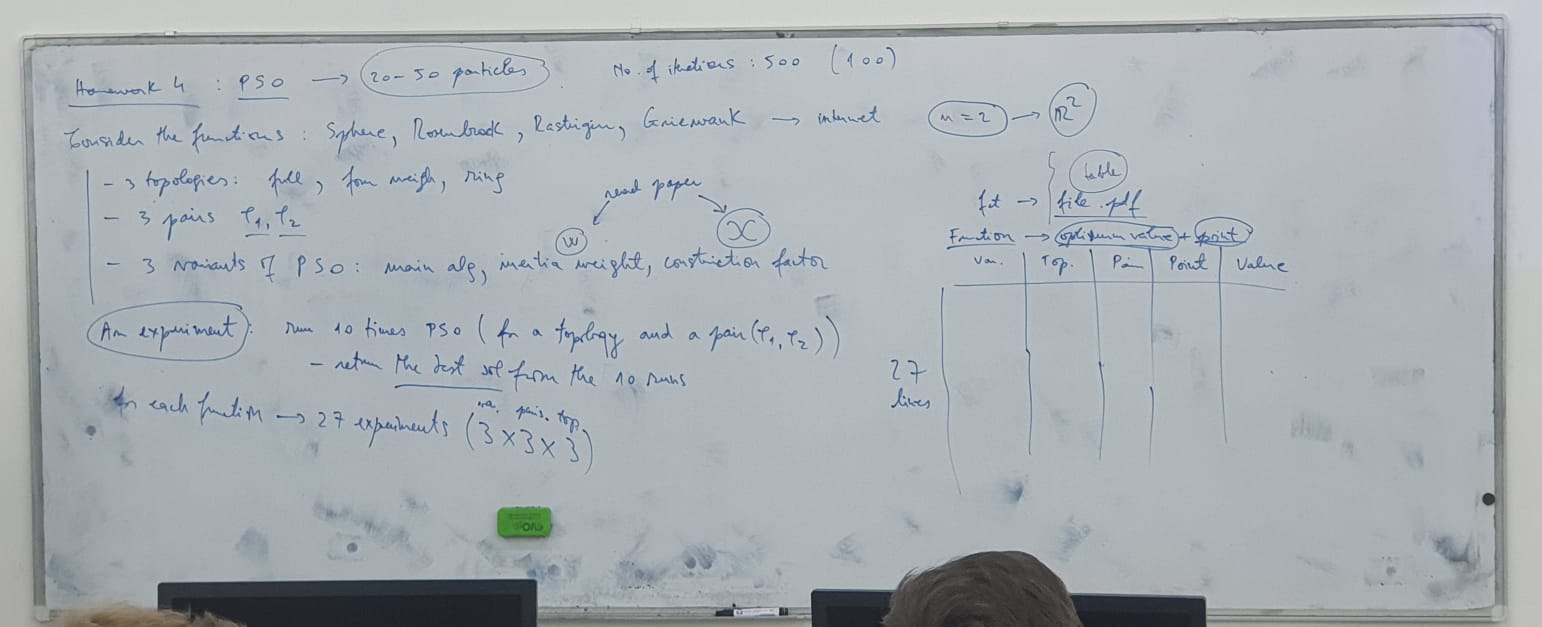 Homework 4 : PSO → 20-50 particles No. of iterations : 500 (100)
Consider the functions : Sphere, Rosenbrock, Rastrigin, Griewank → internet n=2 → ℝ²
- 3 topologies: full, four neigh, ring
- 3 pairs φ1, φ2
read paper
w χ
- 3 variants of PSO: main alg, inertia weight, constriction factor
An experiment: run 10 times PSO (for a topology and a pair (φ1, φ2))
- return the best sol from the 10 runs
for each function → 27 experiments (3×3×3)
var. pairs. top.
table
→ file.pdf
Function → optimum value + point
Var. Top. Pair Point Value
27
lines